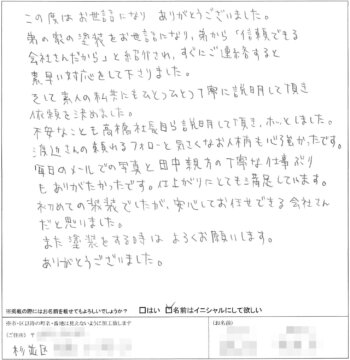 この度はお世話になり ありがとうございました。
弟の家の塗装をお世話になり、弟から「信頼できる
会社さんだから」と紹介され、すぐにご連絡すると
素早い対応をして下さりました。
そして素人の私共にもひとつひとつ丁寧に説明して頂き
依頼を決めました。
不安なことも高橋社長自ら説明して頂き、ホッとしました。
渡辺さんの頼れるフォローと気さくなお人柄も心強かったです。
毎日のメールでの写真と田中親方の丁寧な仕事ぶり
もありがたかったです。仕上がりにとても満足しています。
初めての塗装でしたが、安心してお任せできる会社さん
だと思いました。
また塗装をする時は よろしくお願いします。
ありがとうございました。
※掲載の際にはお名前を載せてもよろしいでしょうか？ □はい ☑名前はイニシャルにして欲しい
(ご住所) 〒
杉並区
(お名前)